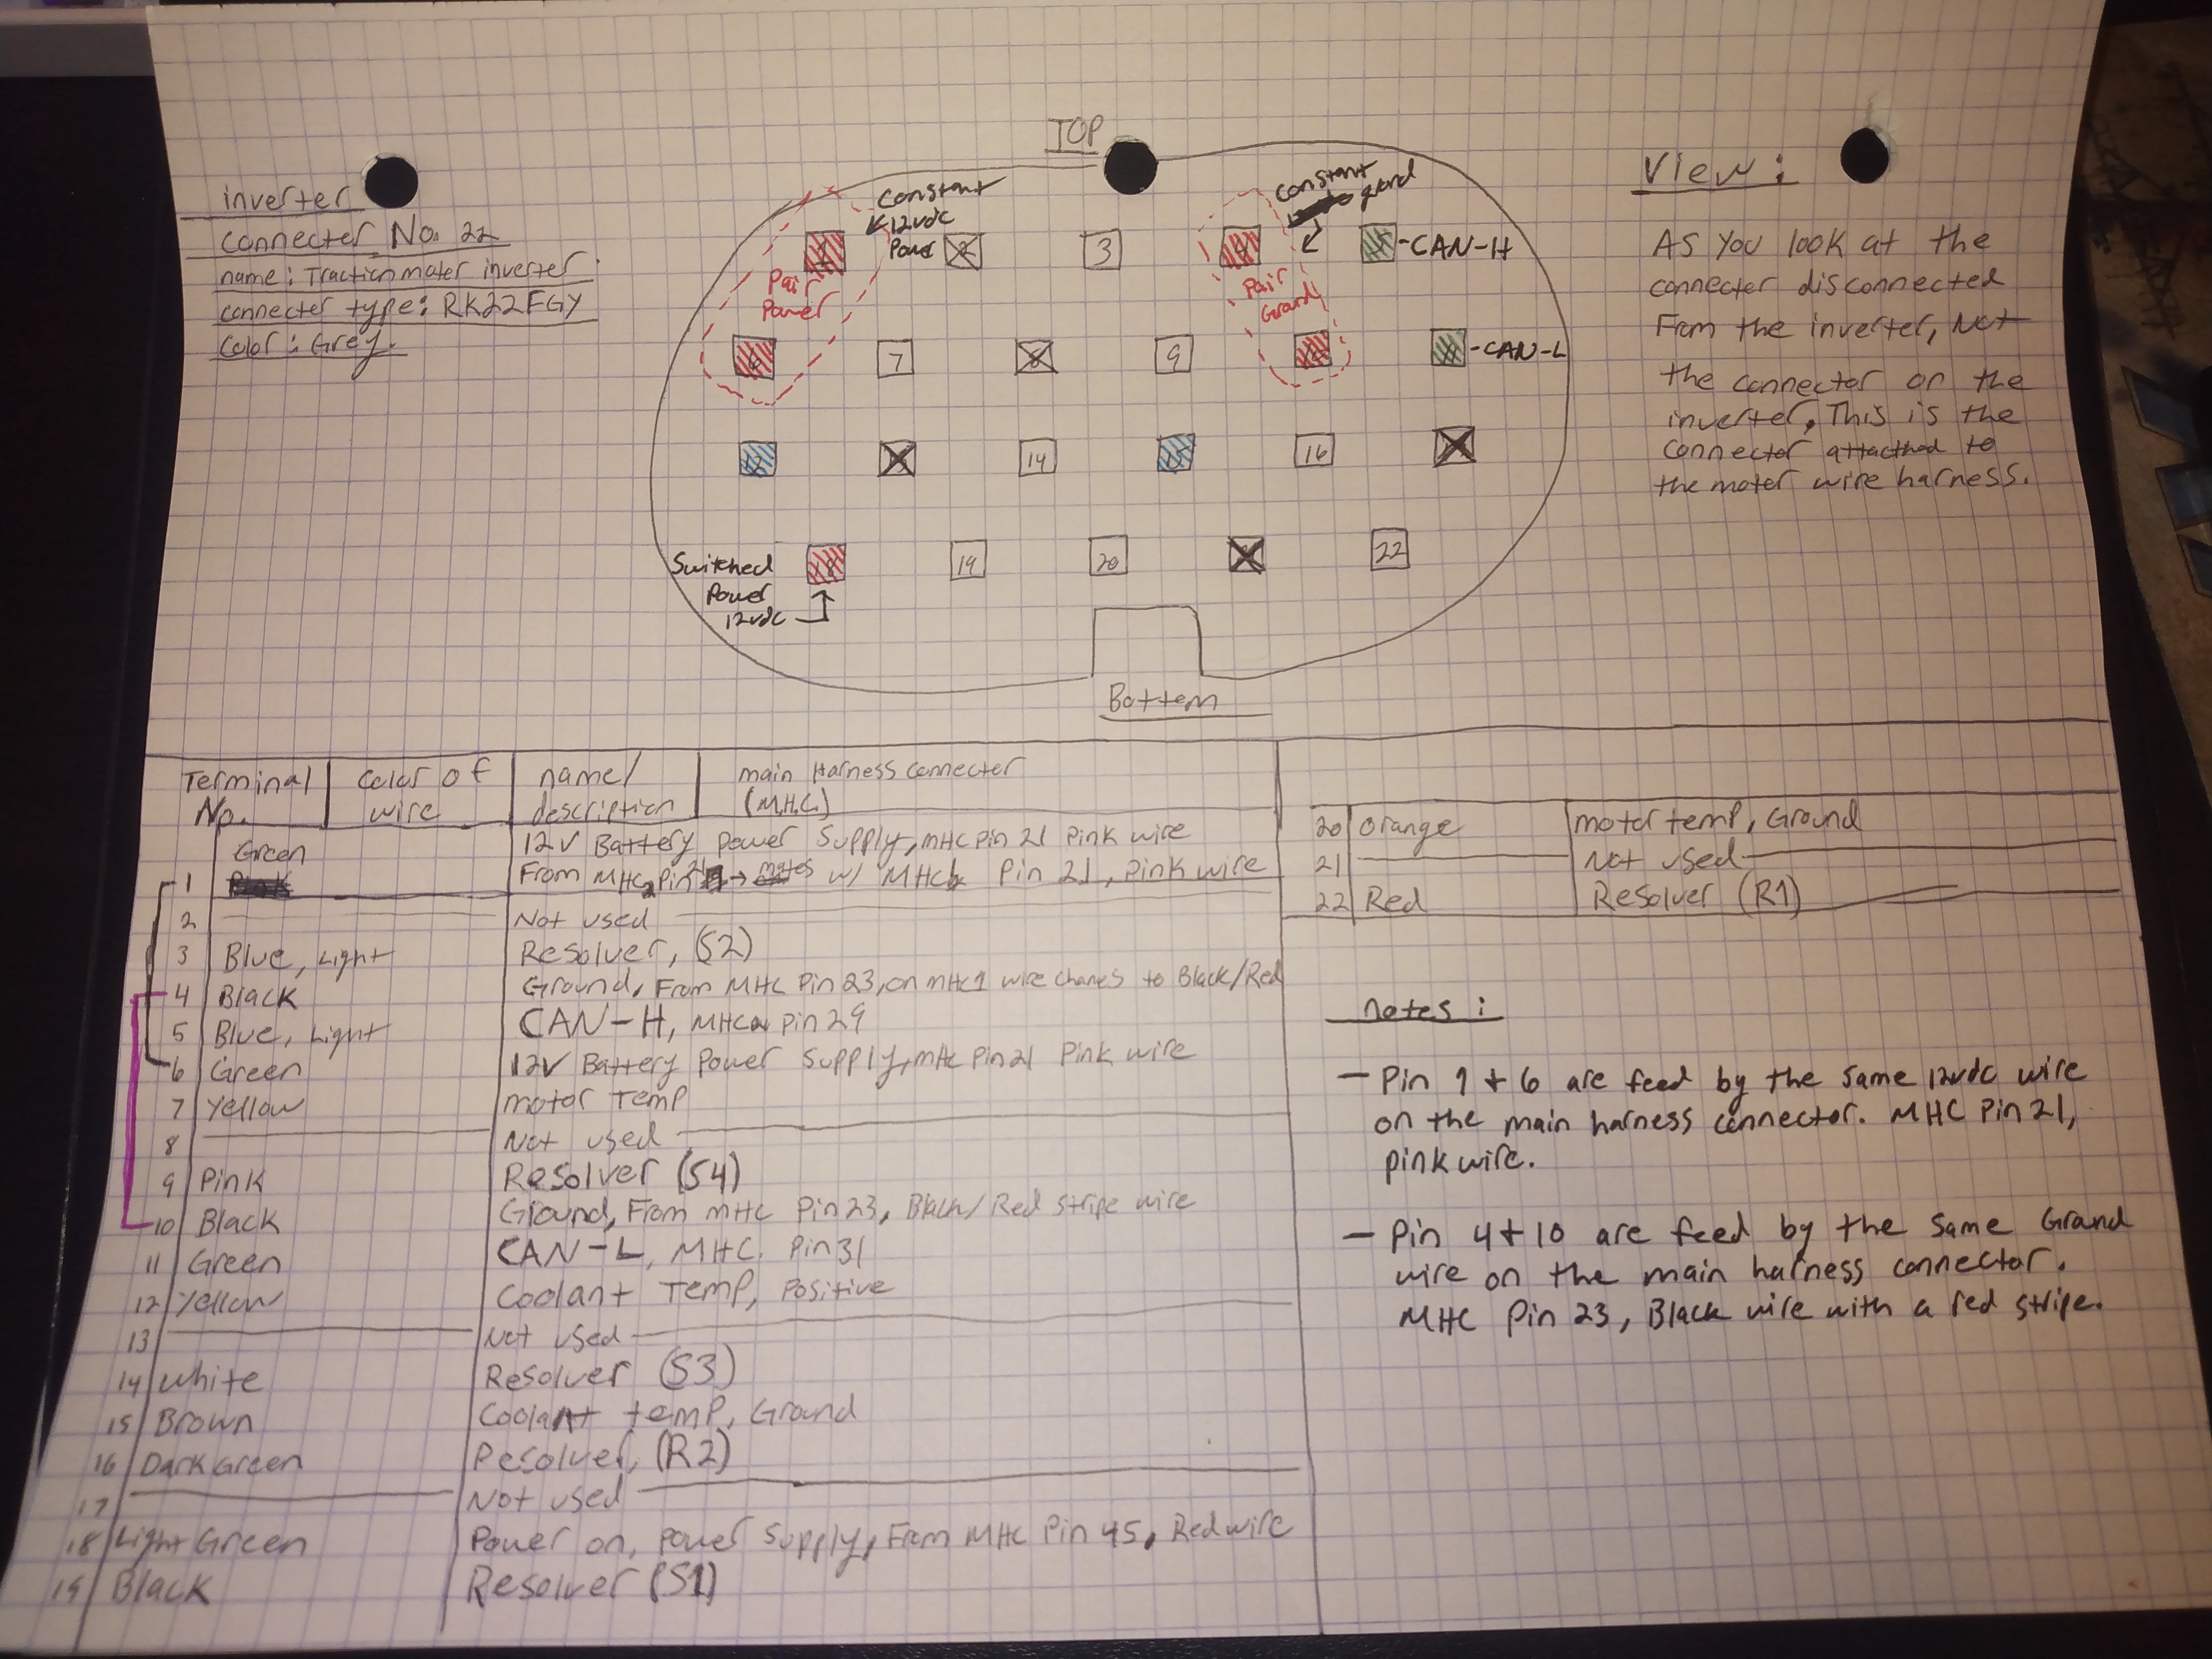 inverter
connecter No. 22
name: Traction moter inverter
connecter type: RK22FGY
Color: Grey.
TOP
Constant
12vdc
Power
Constant
grond
1
3
4
-CAN-H
Pair
Power
Pair
Grand
6
7
8
9
-CAN-L
12
14
15
16
Switched
Power
12vdc
18
19
20
22
Bottem
View:
As you look at the
connecter disconnected
From the inverter, Not
the connecter on the
inverter. This is the
connector attacthed to
the moter wire harness.
Terminal No. Color of wire name/ description main Harness Connecter (M.H.C)
12V Battery Power Supply, MHC Pin 21 Pink wire
1 Green From MHC2 Pin 21 → w/ MHC1 Pin 21, Pink wire
2 Not used
3 Blue, Light Resolver, (S2)
4 Black Ground, From MHC Pin 23, on MHC1 wire chanes to Black/Red
5 Blue, Light CAN-H, MHC2 Pin 29
6 Green 12V Battery Power Supply, MHC Pin 21 Pink wire
7 Yellow motor Temp
8 Not used
9 Pink Resolver (S4)
10 Black Ground, From MHC Pin 23, Black/Red Stripe wire
11 Green CAN-L, MHC. Pin 31
12 Yellow Coolant Temp, Positive
13 Not used
14 White Resolver (S3)
15 Brown Coolant temp, Ground
16 Dark Green Resolver, (R2)
17 Not used
18 Light Green Power on, Power Supply, From MHC Pin 45, Red wire
19 Black Resolver (S1)
20 Orange motor temp, Ground
21 Not used
22 Red Resolver (R1)
notes:
- Pin 1 + 6 are feed by the same 12vdc wire
on the main harness connector. MHC Pin 21,
pink wire.
- Pin 4 + 10 are feed by the same Grand
wire on the main harness connector.
MHC Pin 23, Black wire with a red stripe.